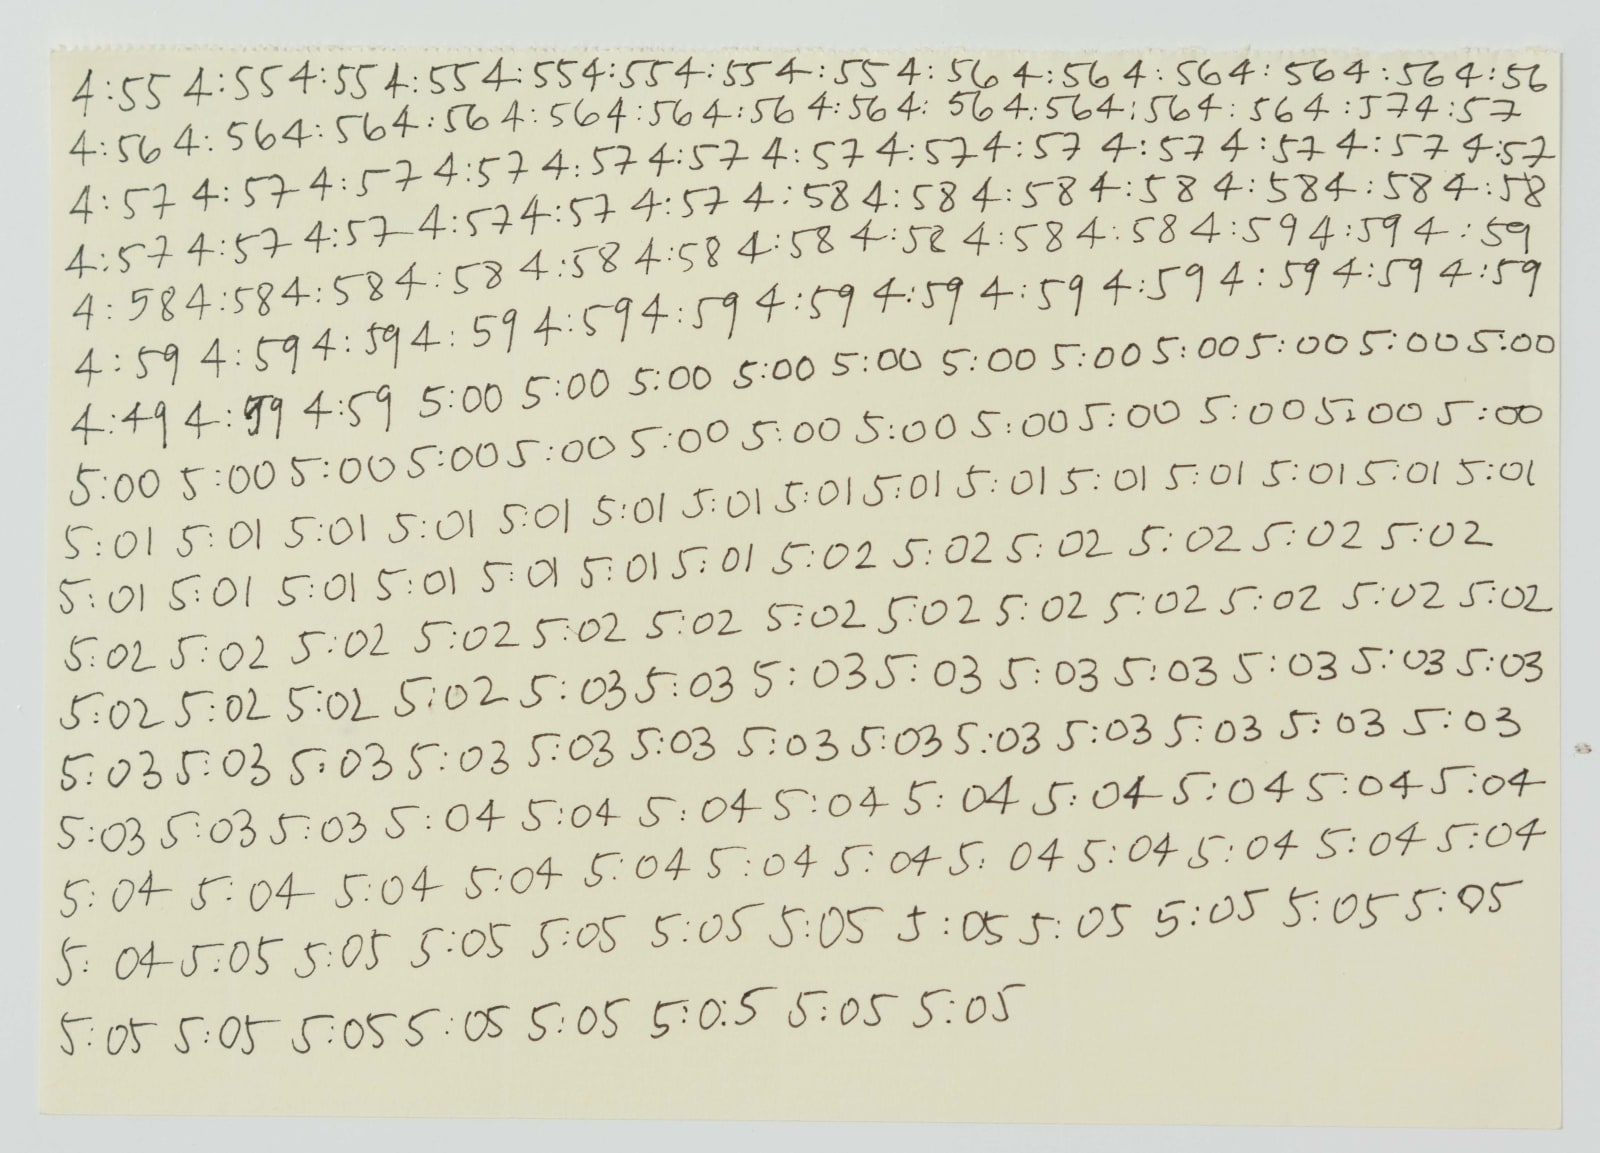 4:55 4:55 4:55 4:55 4:55 4:55 4:55 4:55 4:56 4:56 4:56 4:56 4:56 4:56
4:56 4:56 4:56 4:56 4:56 4:56 4:56 4:56 4:56 4:56 4:56 4:56 4:57 4:57
4:57 4:57 4:57 4:57 4:57 4:57 4:57 4:57 4:57 4:57 4:57 4:57 4:57
4:57 4:57 4:57 4:57 4:57 4:57 4:58 4:58 4:58 4:58 4:58 4:58 4:58
4:58 4:58 4:58 4:58 4:58 4:58 4:58 4:58 4:58 4:58 4:59 4:59 4:59
4:59 4:59 4:59 4:59 4:59 4:59 4:59 4:59 4:59 4:59 4:59 4:59 4:59
4:49 4:59 4:59 5:00 5:00 5:00 5:00 5:00 5:00 5:00 5:00 5:00 5:00 5:00
5:00 5:00 5:00 5:00 5:00 5:00 5:00 5:00 5:00 5:00 5:00 5:00 5:00
5:01 5:01 5:01 5:01 5:01 5:01 5:01 5:01 5:01 5:01 5:01 5:01 5:01 5:01 5:01
5:01 5:01 5:01 5:01 5:01 5:01 5:01 5:02 5:02 5:02 5:02 5:02 5:02
5:02 5:02 5:02 5:02 5:02 5:02 5:02 5:02 5:02 5:02 5:02 5:02 5:02
5:02 5:02 5:02 5:02 5:03 5:03 5:03 5:03 5:03 5:03 5:03 5:03 5:03
5:03 5:03 5:03 5:03 5:03 5:03 5:03 5:03 5:03 5:03 5:03 5:03 5:03
5:03 5:03 5:03 5:04 5:04 5:04 5:04 5:04 5:04 5:04 5:04 5:04
5:04 5:04 5:04 5:04 5:04 5:04 5:04 5:04 5:04 5:04 5:04 5:04
5:04 5:05 5:05 5:05 5:05 5:05 5:05 5:05 5:05 5:05 5:05 5:05
5:05 5:05 5:05 5:05 5:05 5:0.5 5:05 5:05